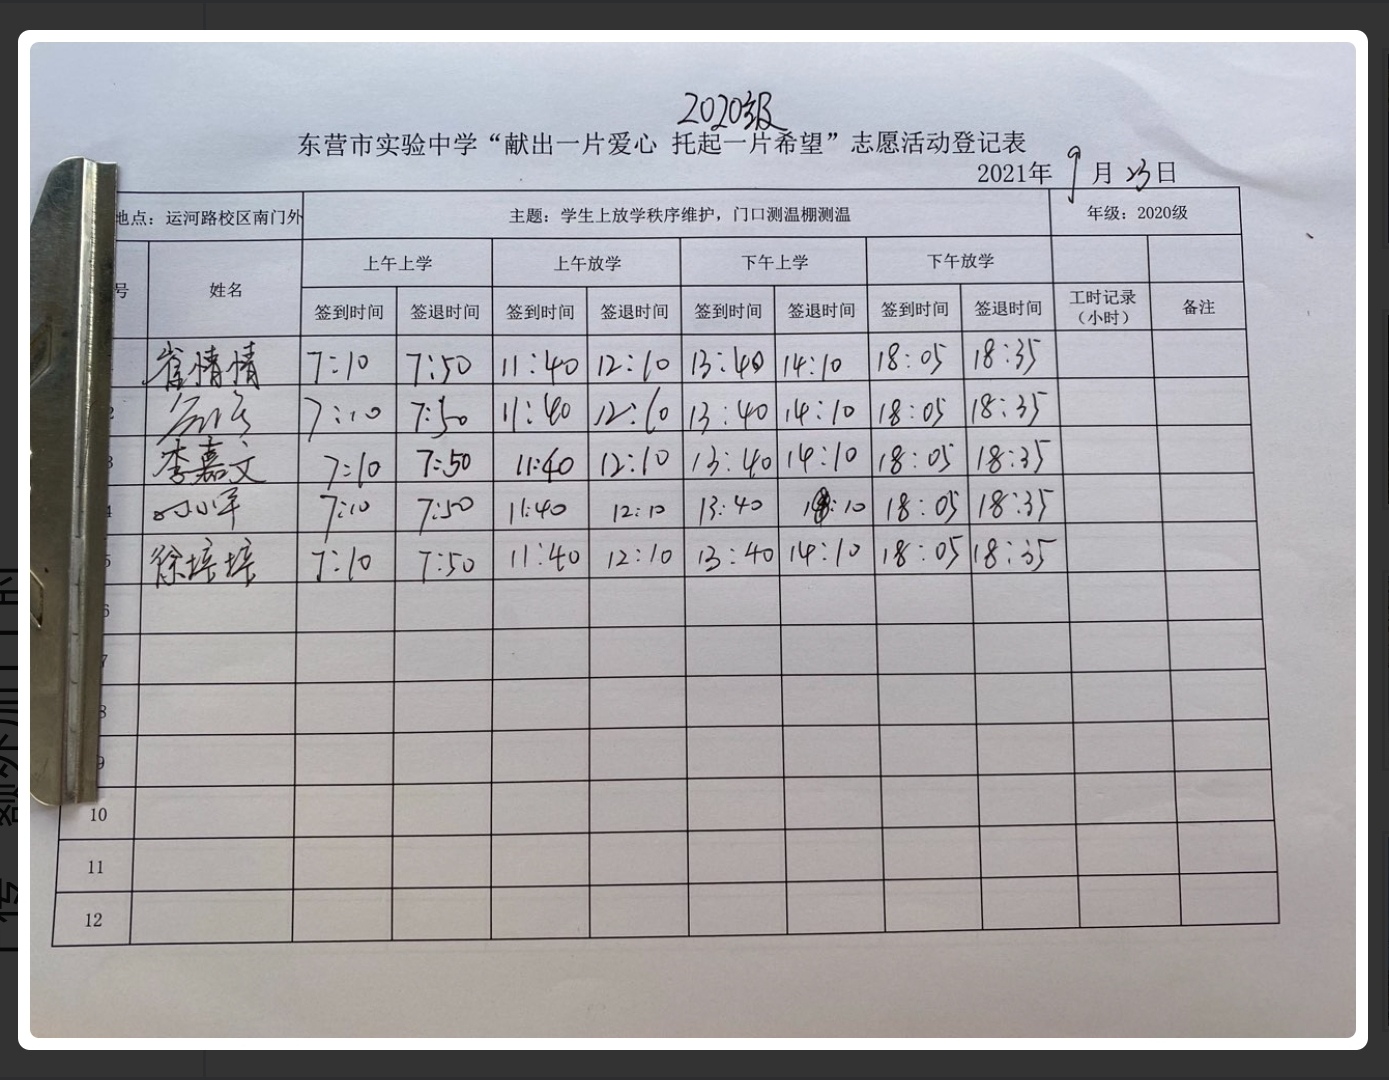 2020级
东营市实验中学“献出一片爱心 托起一片希望”志愿活动登记表
2021年 9月 23日
地点：运河路校区南门外 主题：学生上放学秩序维护，门口测温棚测温 年级：2020级
号 姓名 上午上学 上午放学 下午上学 下午放学
签到时间 签退时间 签到时间 签退时间 签到时间 签退时间 签到时间 签退时间 工时记录（小时） 备注
崔情情 7:10 7:50 11:40 12:10 13:40 14:10 18:05 18:35
2 7:10 7:50 11:40 12:10 13:40 14:10 18:05 18:35
3 李嘉文 7:10 7:50 11:40 12:10 13:40 14:10 18:05 18:35
4 7:10 7:50 11:40 12:10 13:40 18:05 18:35
5 徐培培 7:10 7:50 11:40 12:10 13:40 14:10 18:05 18:35
6
7
8
9
10
11
12